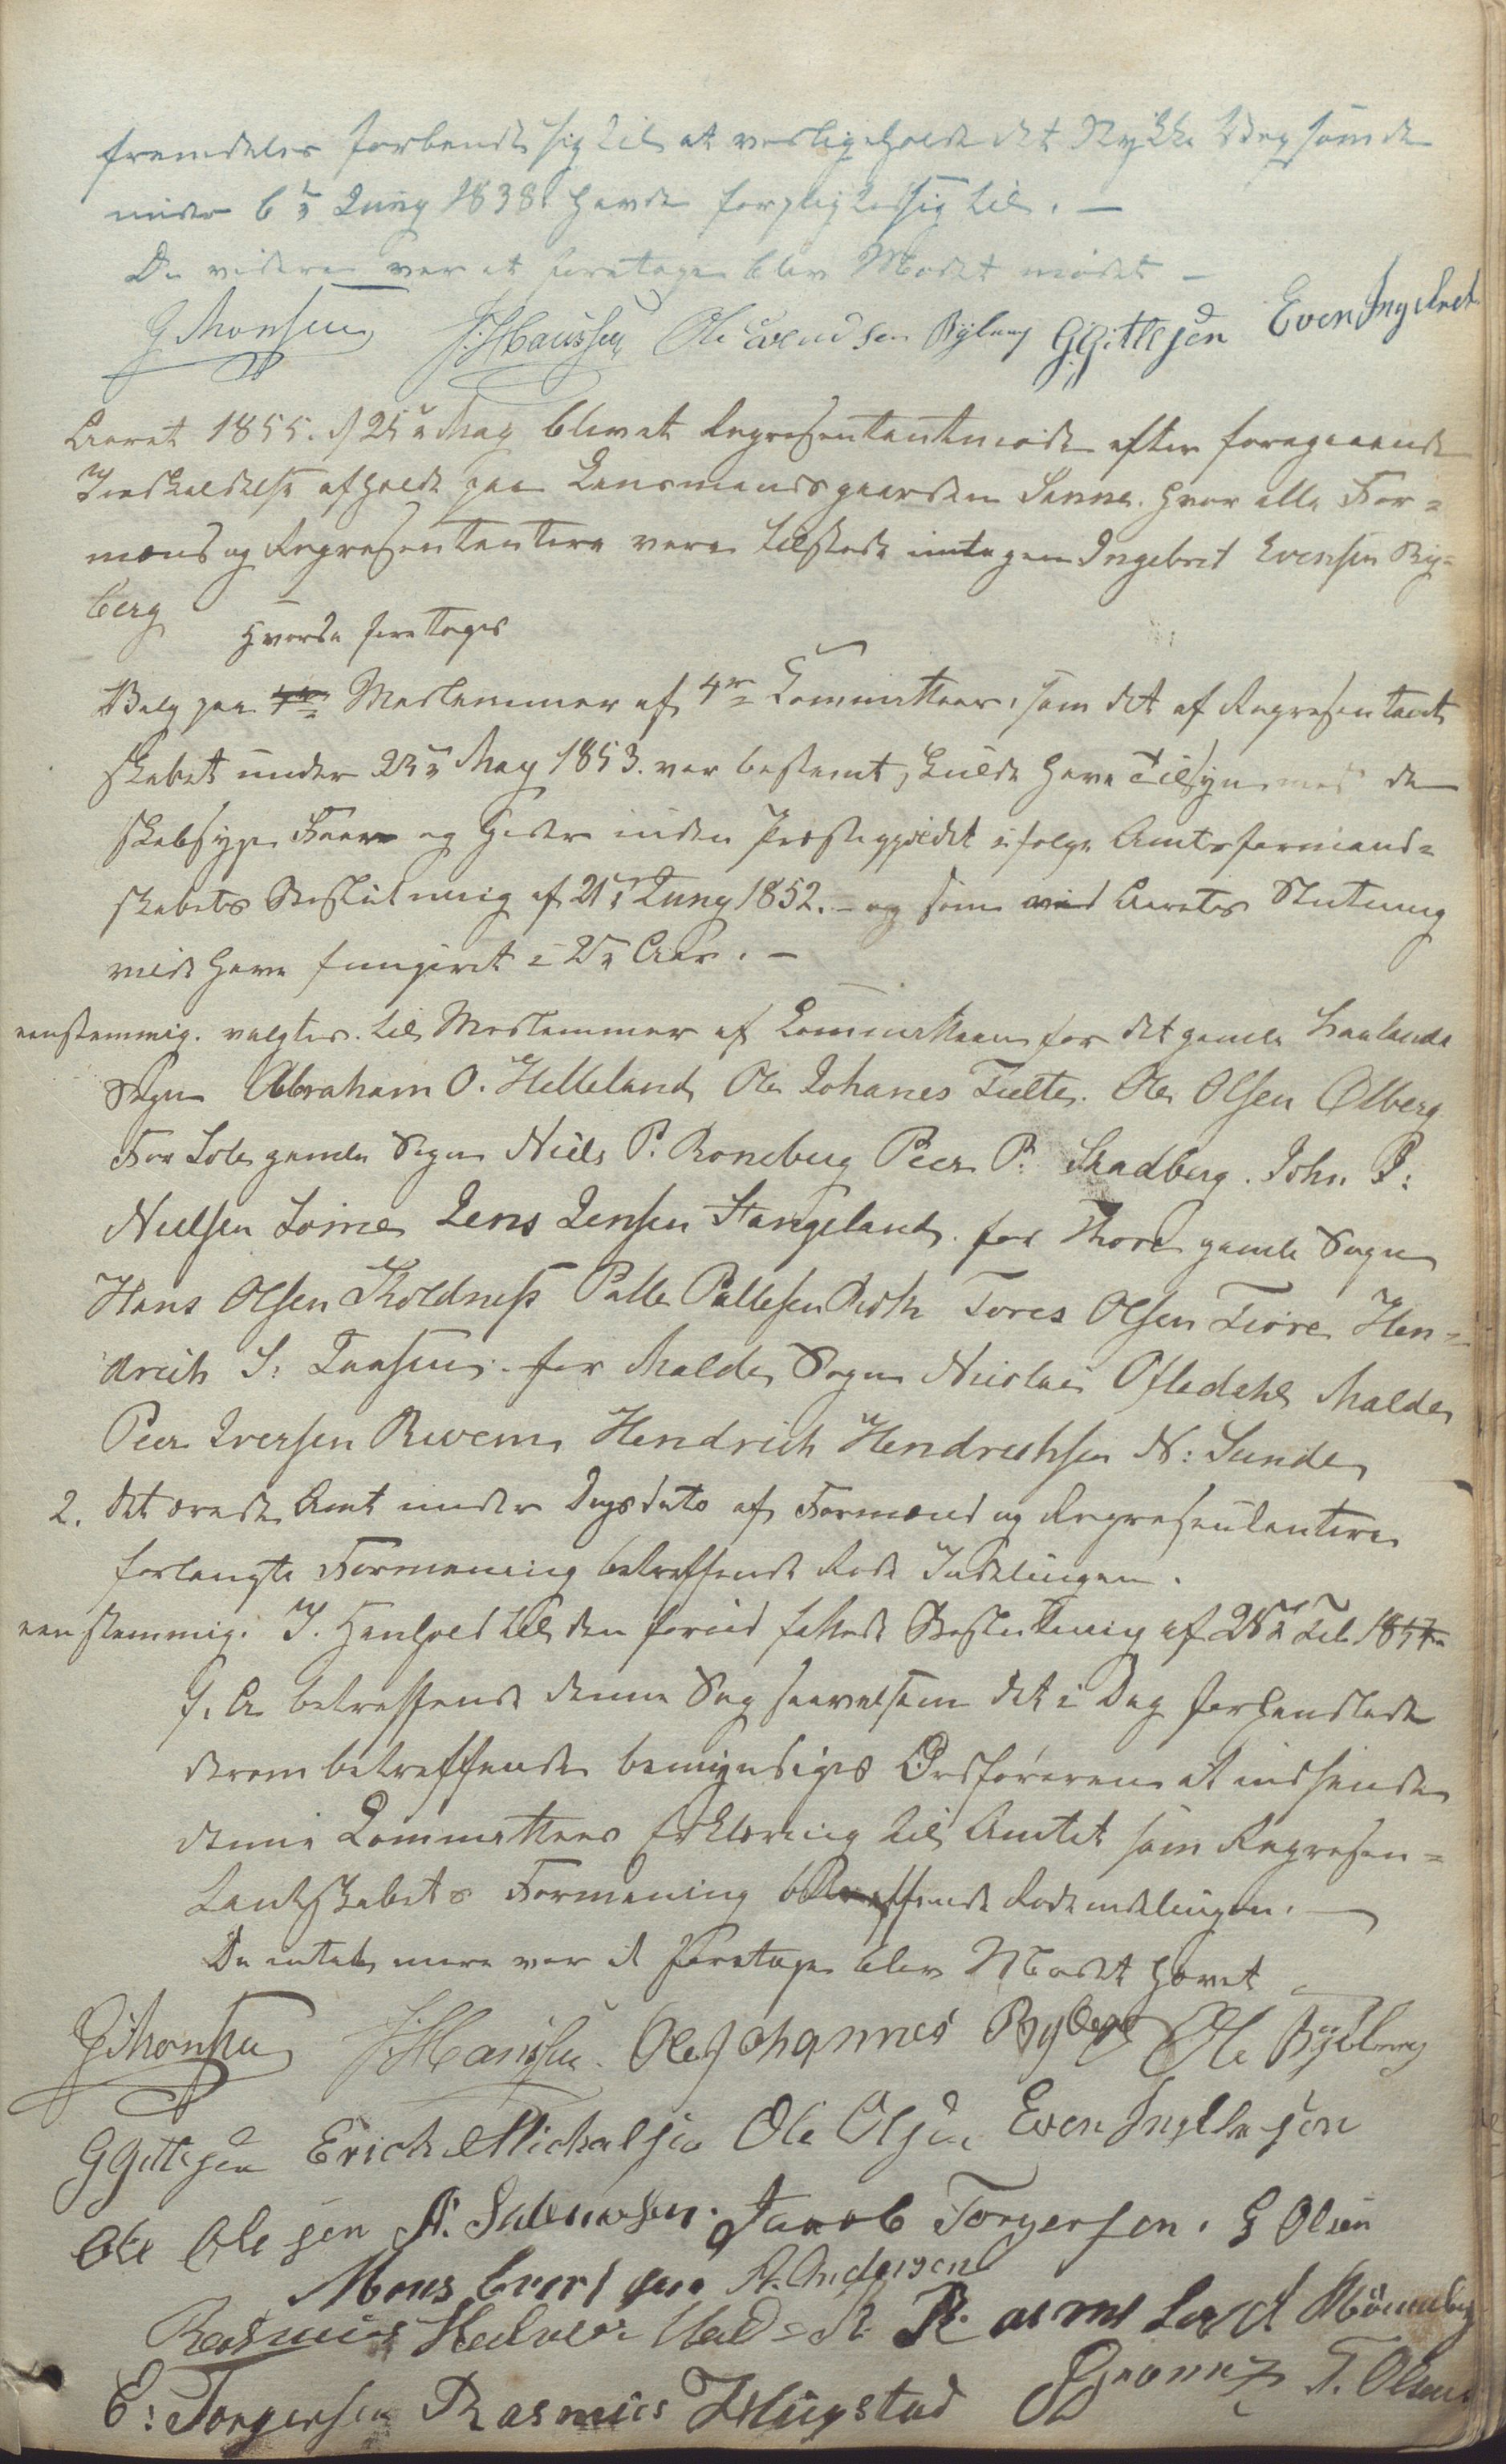 fremdeles forbandt sig til at vedligeholde det Stykke Vei som de
under 6te Juny 1838 havde forpligtet sig til. —
Da videre var at foretage blev Mødet
G Monsen J. Hansen Ole Evendsen Ryberg G Gitlesen Even Ingebret
Aaret 1855. d 25de May blev et Representantmøde efter foregaaende
Indkaldelse afholdt paa Lensmandsgaarden Sønne. hvor alle For=
mænd og Representantere vare tilstede undtagen Ingebret Evensen Ry=
berg
Hvorda foretoges
Valg paa Medlemmer af 4re Committeer, som det af Representant
skabet under 23de May 1853. var bestemt, skulde have Tilsyn med de
skabsyge Faar og Geder inden Præstegjeldet ifølge Amtsformand=
skabets Beslutning af 21de Juny 1852. - og som ved Aarets Slutning
vilde have fungeret i 2de Aar. —
eenstemmig. valgtes til Medlemmer af Committeen for det gamle Haalands
Sogn Abraham O. Helleland, Ole Johanes Tielte. Ole Olsen Ølberg
For Sole gamle Sogn Niels P. Roneberg Peer P. Stadberg. John P:
Nielsen Sømme Jens Jensen Stangeland. for Thore gamle Sogn
Hans Olsen Koldness Palle Pallesen Tores Olsen Tiøre Hen=
drich S: Taasen. for Malde Sogn Nicolai Oftedahl Malde
Peer Iversen Revem Hendrich Hendrichsen N: Sunde
2. Det ærede Amt under Dagsdato af Formænd og Representantere
forlangte Formening betreffende Rode Indelingen.
eenstemmig. I Henhold til den forud fattede Beslutning af 28de Feb 1854
f. A. betreffende denne Sag saavelsom det i Dag forhandlede
derom betreffende bemyndiges Ordføreren at indsende
denne Committees Erklæring til Amtet som Represen=
tantskabets Formening betreffende Rodeindelingen. —
Da intet mere var at foretage blev Mødet hævet
G Monsen J. Hansen. Ole Johannes Ryberg Ole Ryberg
G Gitlesen Erich Michalsen Ole Olsen Even Ingebresen
Ole Olesen A. Salemosen. Jacob Torgersen. G Olsen
Mons Evertsen A. Andersen
Rasmus Halvor
E: Torgersen Rasmus Haugstad T. Olsen